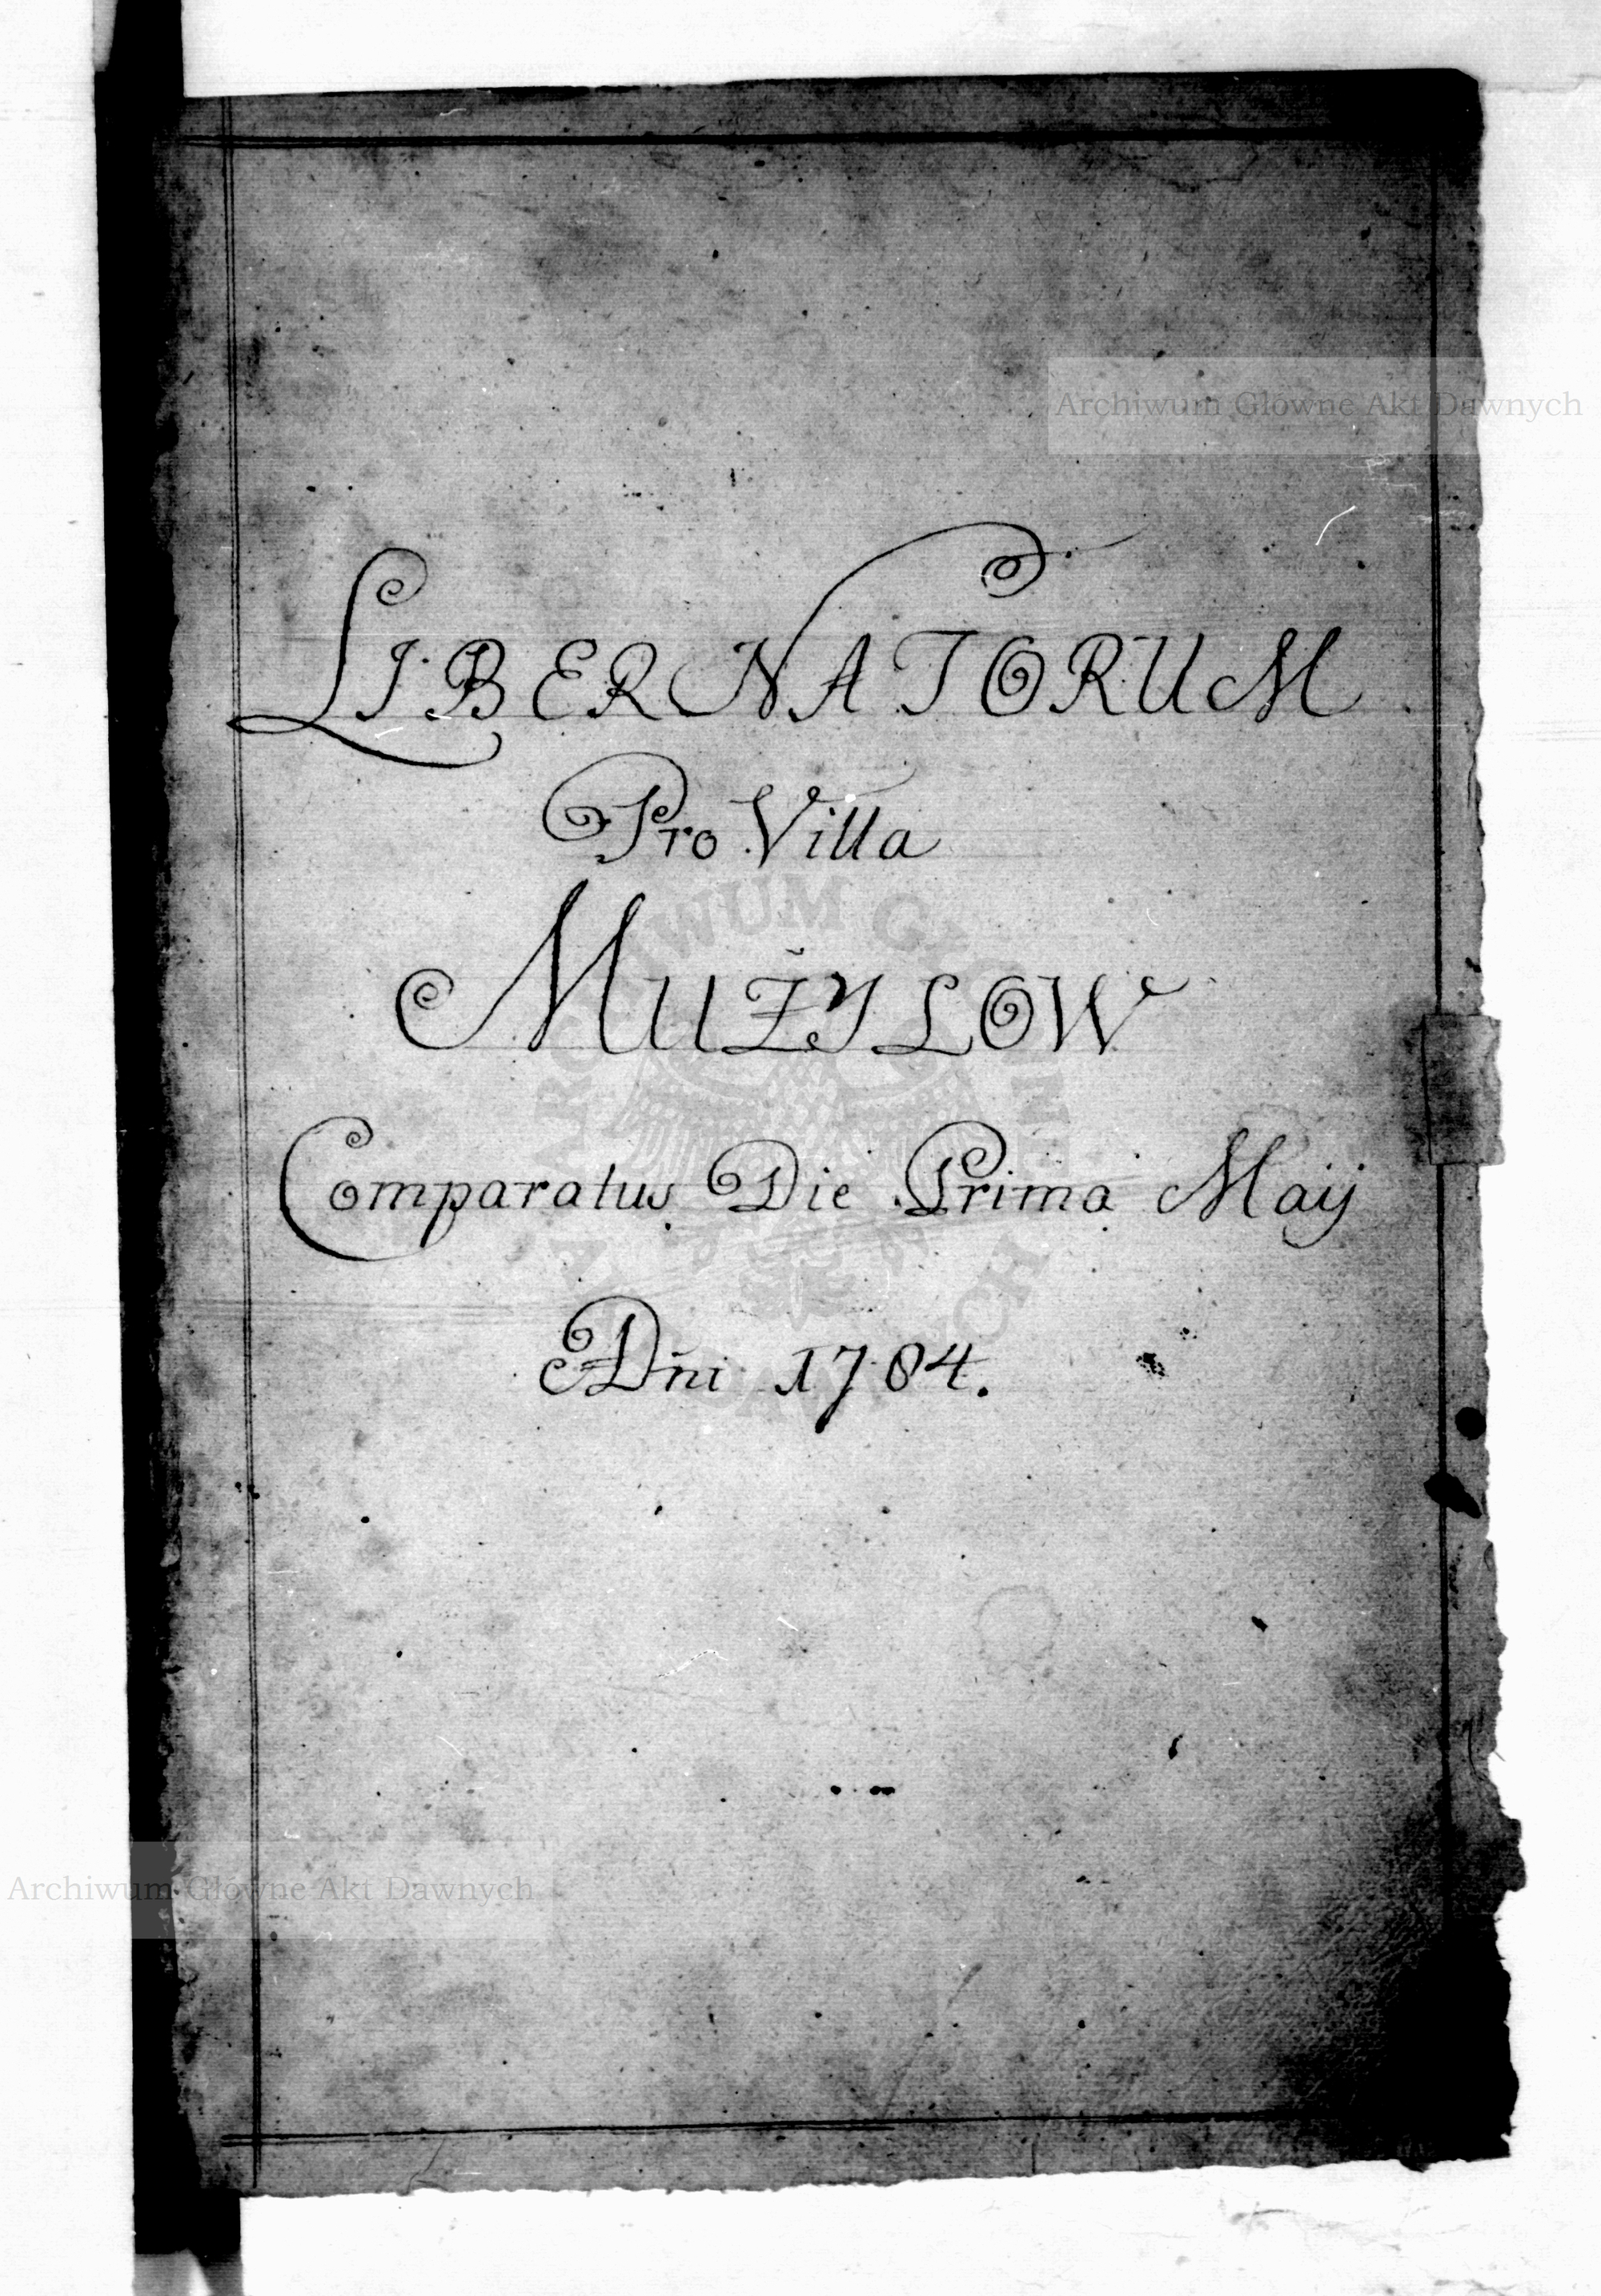 Archiwum Główne Akt Dawnych
LIBER NATORUM
Pro Villa
MUŻYLOW
Comparatus Die Prima Maij
ADñi 1784.
Archiwum Główne Akt Dawnych